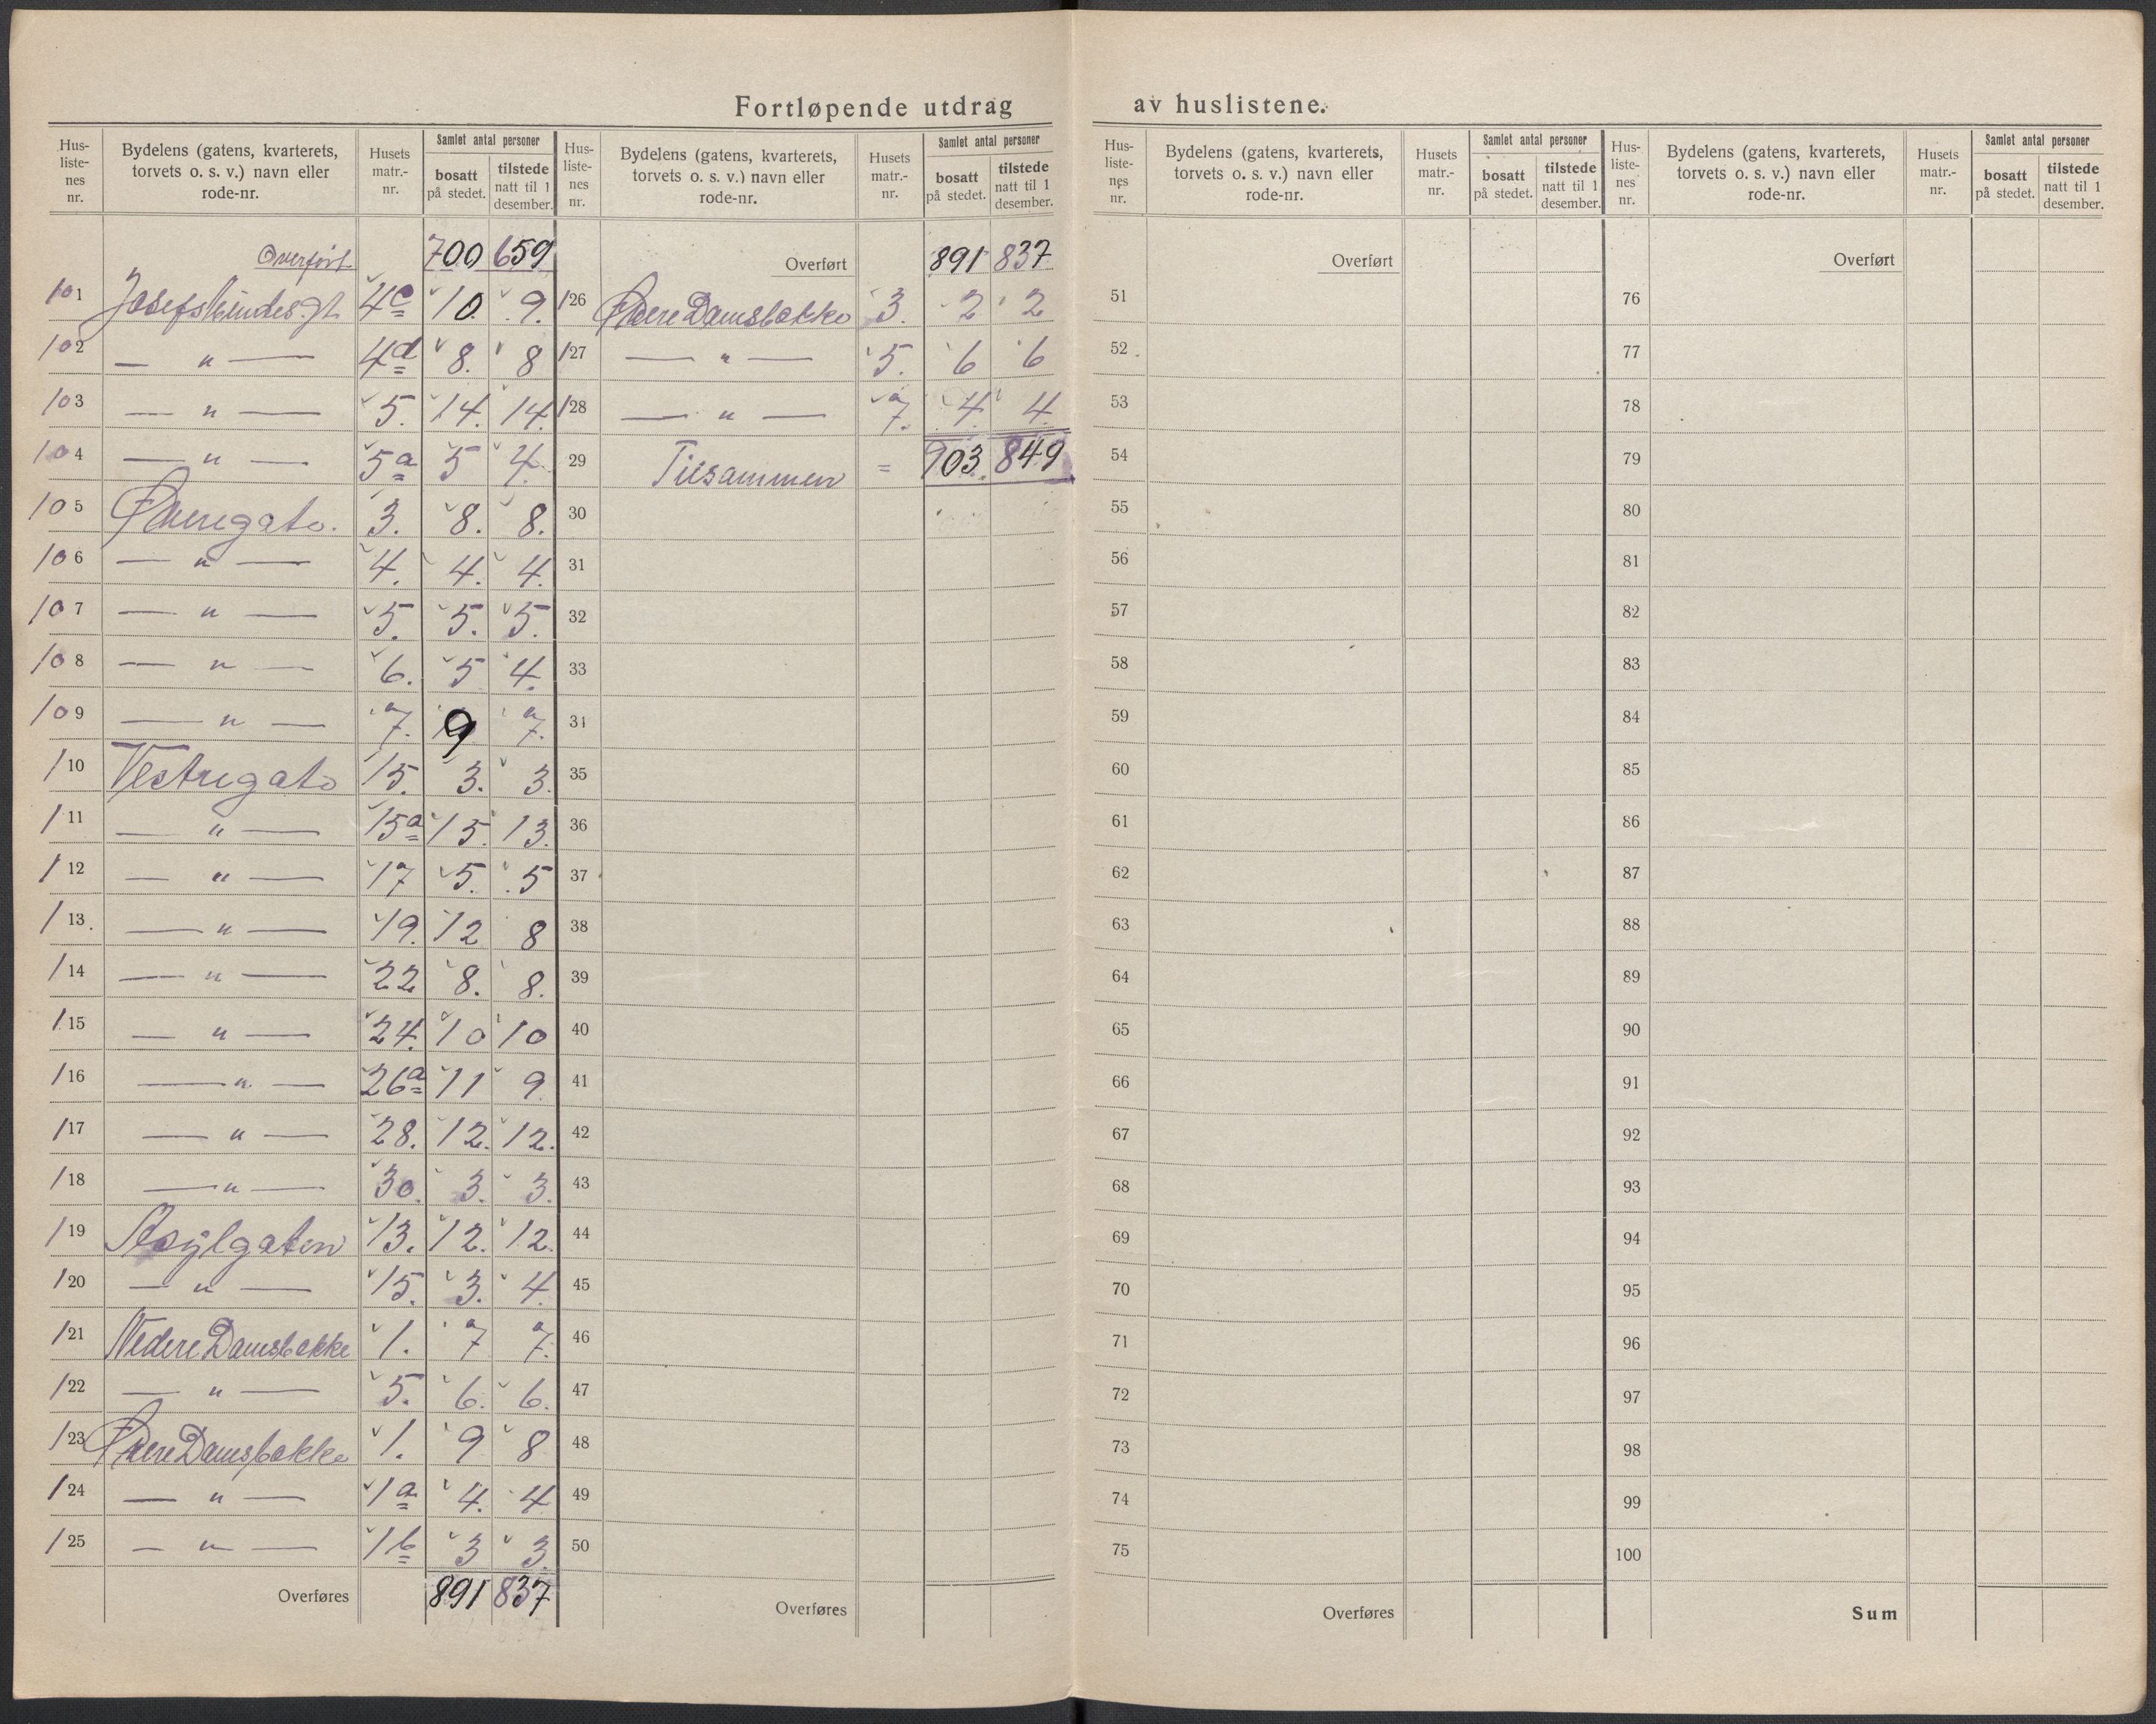 Fortløpende utdrag av huslistene.
Hus-listenes nr. | Bydelens (gatens, kvarterets, torvets o. s. v.) navn eller rode-nr. | Husets matr.-nr. | Samlet antal personer bosatt på stedet. | tilstede natt til 1 desember.
Overført 700 659
101 Josefs Mindes.gt 4c 10. 9.
102 — " — 4d 8. 8
103 — " — 5. 14. 14.
104 — " — 5a 5 4.
105 Øveregate. 3. 8. 8.
106 — " — 4. 4. 4.
107 — " — 5. 5. 5.
108 — " — 6. 5 4.
109 — " — 7. 9 7.
110 Vestregate 15. 3. 3.
111 — " — 15a 15. 13.
112 — " — 17 5. 5
113. — " — 19. 12 8
114 — " — 22 8. 8.
115 — " — 24. 10 10
116 — " — 26a 11 9
117 — " — 28. 12. 12.
118 — " — 30. 3. 3.
119 Asylgaten 13. 12. 12.
120 — " — 15. 3. 4.
121 Nedere Damsbakke 1. 7 7.
122 — " — 5. 6. 6.
123 Øvere Damsbakke 1. 9 8
124 — " — 1a 4. 4
125 — " — 1b 3 3.
Overføres 891 837
Hus-listenes nr. | Bydelens (gatens, kvarterets, torvets o. s. v.) navn eller rode-nr. | Husets matr.-nr. | Samlet antal personer bosatt på stedet. | tilstede natt til 1 desember.
Overført 891 837
126 Øvere Damsbakke 3. 2 2
127 — " — 5. 6 6
128 — " — 7. 4. 4.
29 Tilsammen = 903. 849
30
31
32
33
34
35
36
37
38
39
40
41
42
43
44
45
46
47
48
49
50
Overføres
Hus-listenes nr. | Bydelens (gatens, kvarterets, torvets o. s. v.) navn eller rode-nr. | Husets matr.-nr. | Samlet antal personer bosatt på stedet. | tilstede natt til 1 desember.
Overført
51
52
53
54
55
56
57
58
59
60
61
62
63
64
65
66
67
68
69
70
71
72
73
74
75
Overføres
Hus-listenes nr. | Bydelens (gatens, kvarterets, torvets o. s. v.) navn eller rode-nr. | Husets matr.-nr. | Samlet antal personer bosatt på stedet. | tilstede natt til 1 desember.
Overført
76
77
78
79
80
81
82
83
84
85
86
87
88
89
90
91
92
93
94
95
96
97
98
99
100
Sum